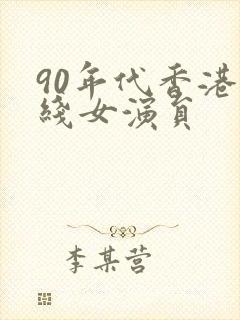 90年代香港
綫女演員
李某营